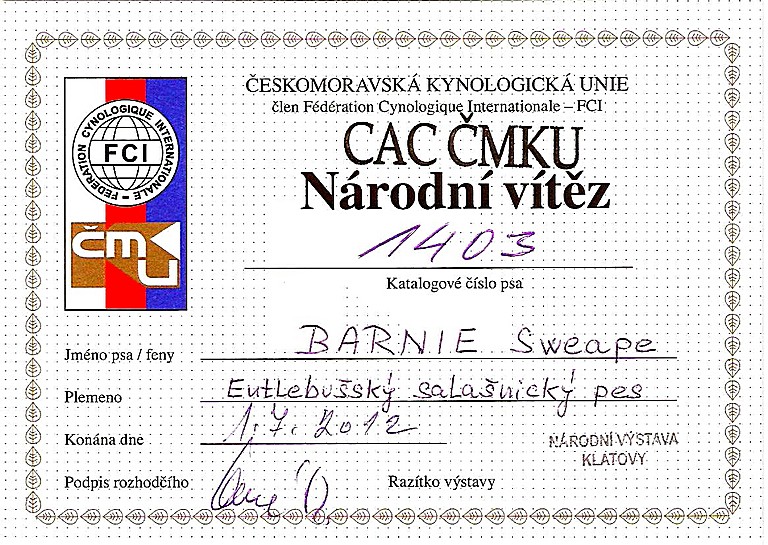 ČESKOMORAVSKÁ KYNOLOGICKÁ UNIE
člen Fédération Cynologique Internationale – FCI
CAC ČMKU
Národní vítěz
FEDERATION CYNOLOGIQUE INTERNATIONALE –
FCI
ČMKU
1403
Katalogové číslo psa
Jméno psa / feny BARNIE Sweape
Plemeno Entlebušský salašnický pes
Konána dne 1.7.2012
NÁRODNÍ VÝSTAVA
KLATOVY
Podpis rozhodčího
Razítko výstavy